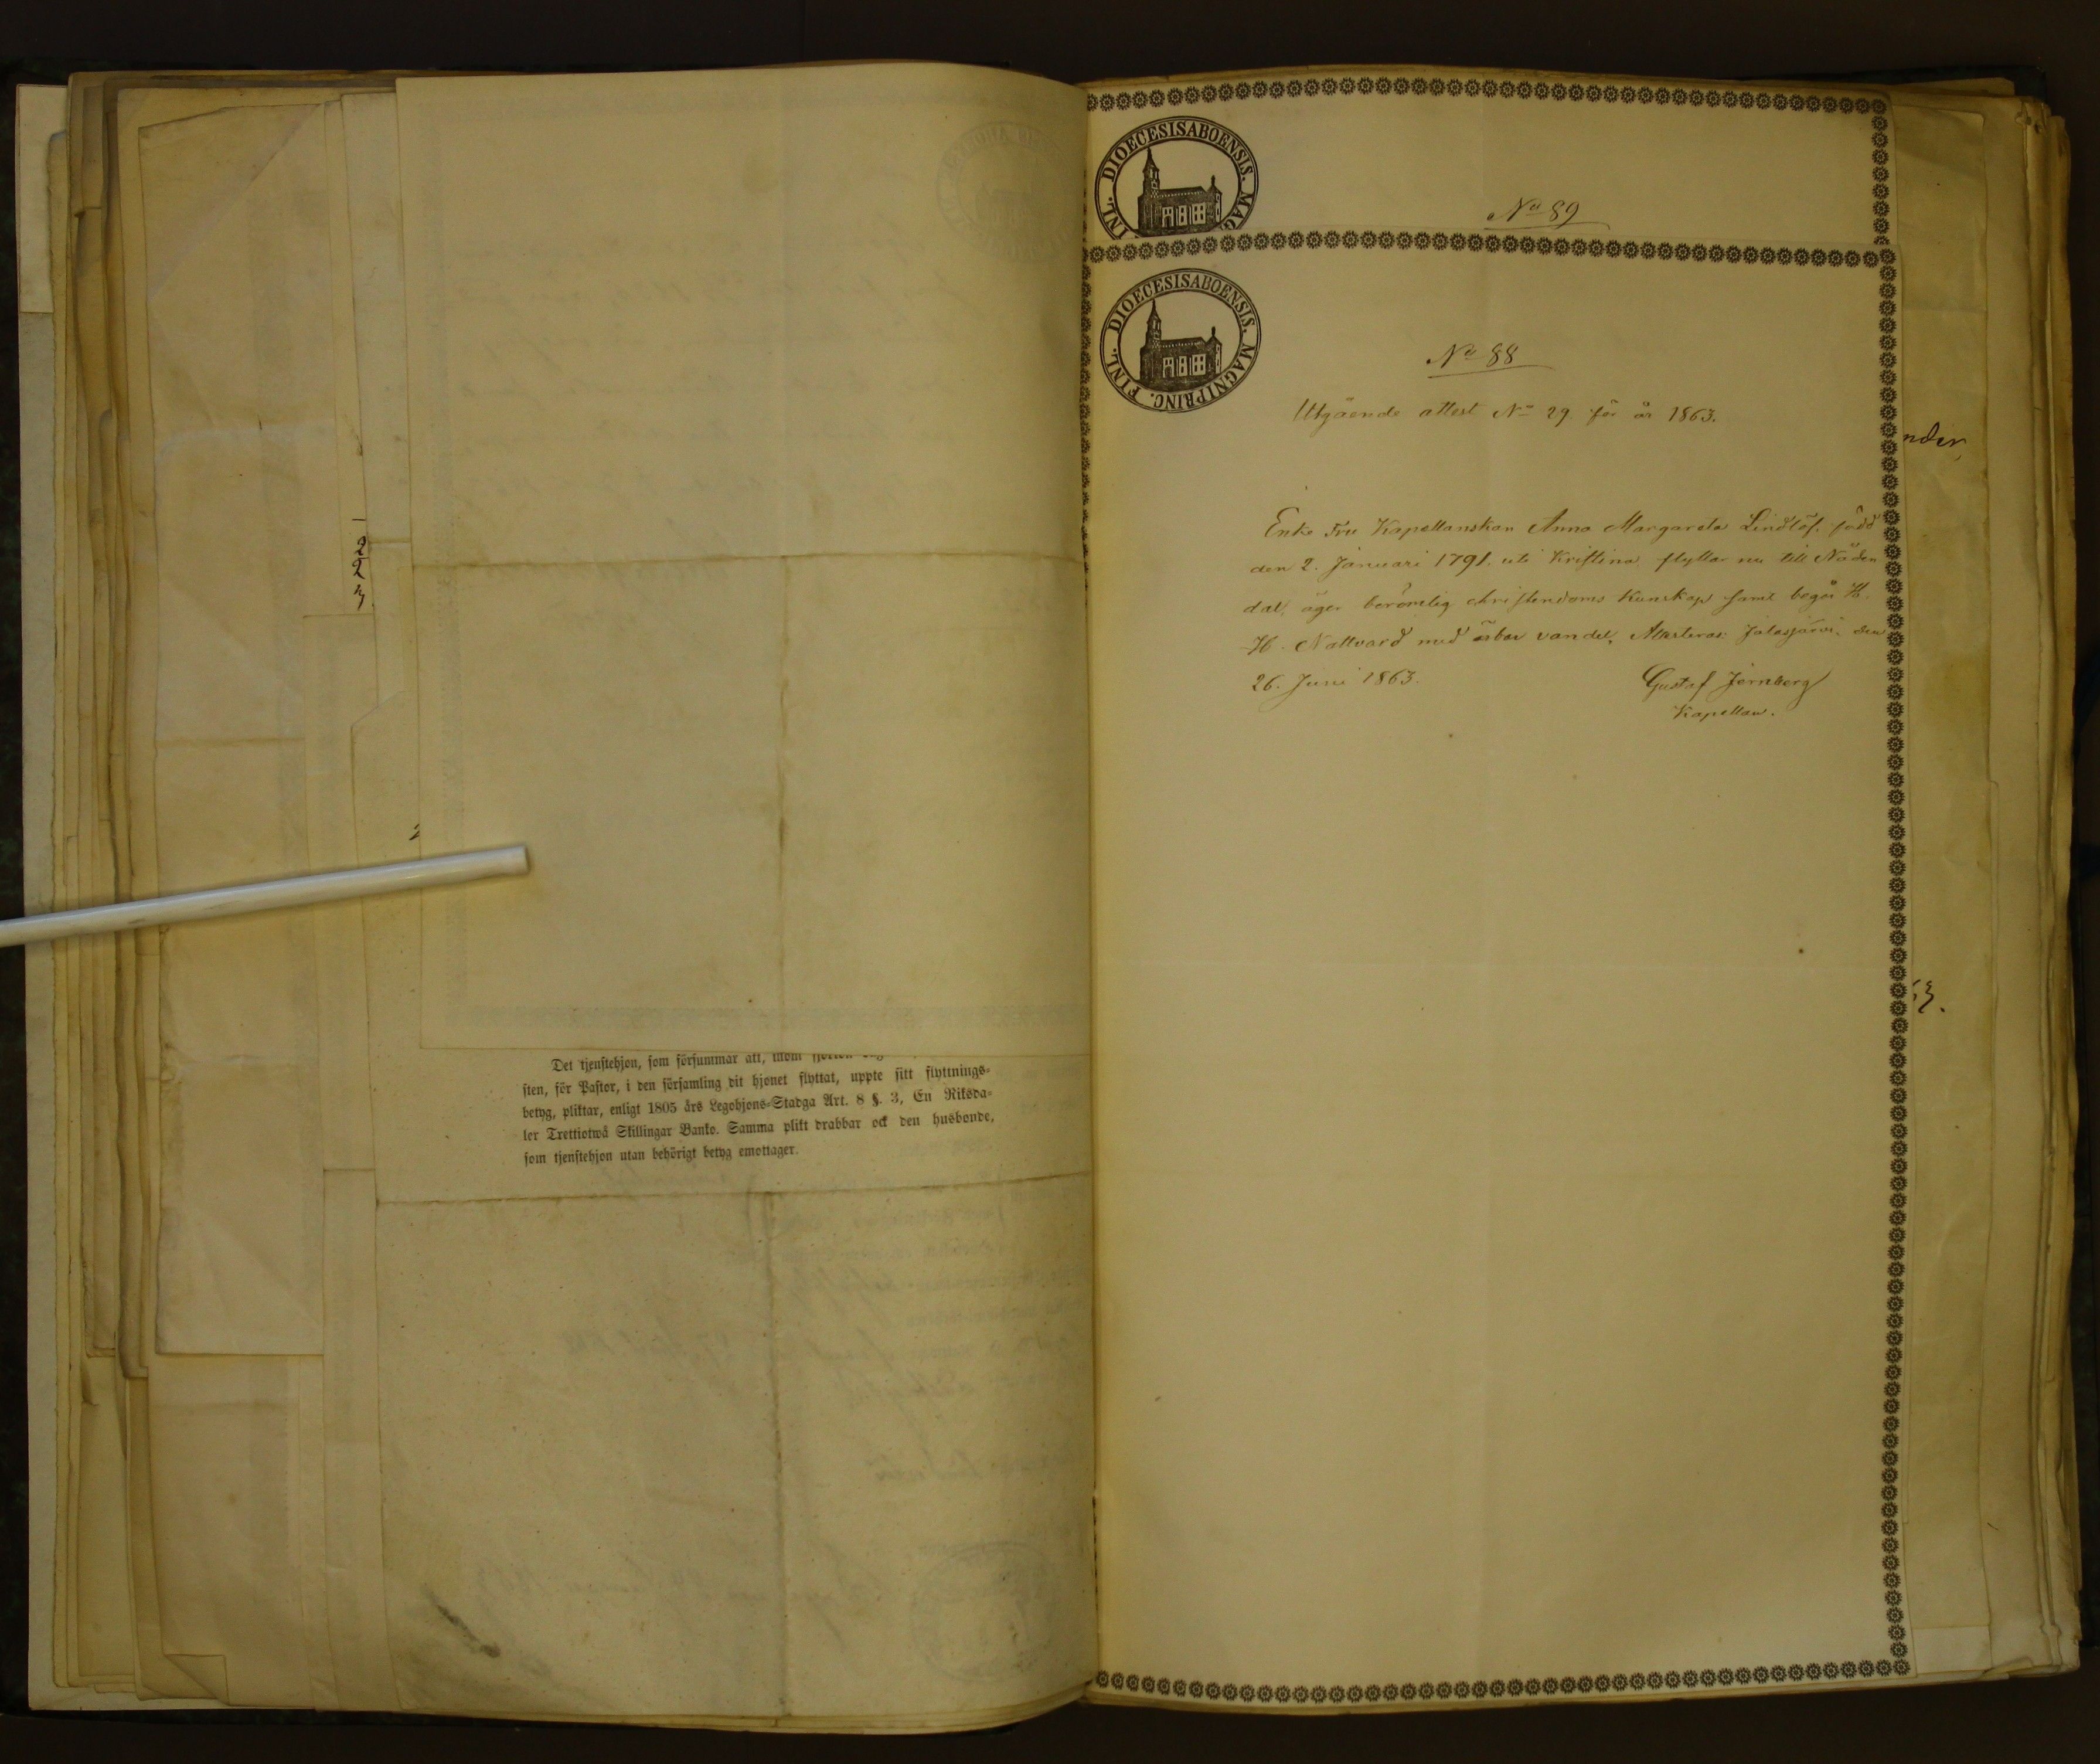 Det tjenstehjon, som försummar att, inom
sten, för Pastor, i den församling dit hjonet flyttat, uppte sitt flyttnings-
betyg, pliktar, enligt 1805 års Legohjons-Stadga Art. 8 §. 3, En Riksda-
ler Trettiotwå Skillingar Banko. Samma plikt drabbar ock den husbonde,
som tjenstehjon utan behörigt betyg emottager.
INL. DIOECESISABOENSIS. MAG
No 89
FINL. DIOECESISABOENSIS. MAGNIPRINC.
No 88
Utgående attest No 29 för år 1863.
Enke Fru Kapellanskan Anna Margareta Lindlöf, född
den 2. Januari 1791. uti Kristina flyttar nu till Nåden
dal, äger berömlig christendoms kunskap samt begår H.
H. Nattvard med ärbar vandel, Attesteras Jalasjärvi den
26. Juni 1863.
Gustaf Jernberg
Kapellan.
nder,
63.